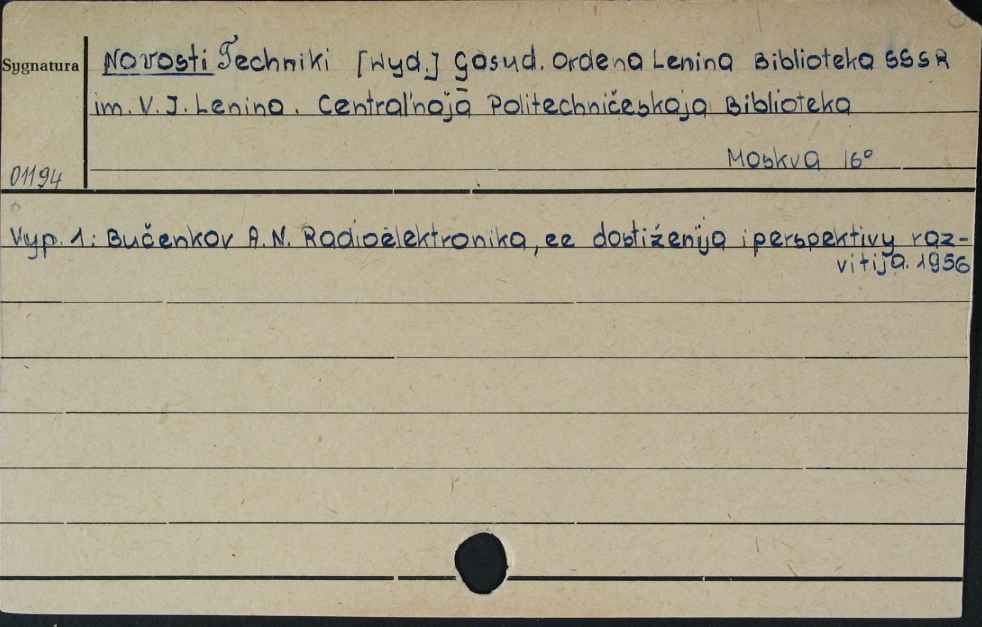 Sygnatura
Novosti Techniki [Wyd.] Gosud. Ordena Lenina Biblioteka SSSR
im. V. J. Lenina. Central'naja Politechničeskaja Biblioteka
Moskva 16°
01194
Vyp. 1: Bučenkov A. N. Radioèlektronika, ee dostiženija i perspektivy raz-
vitija. 1956